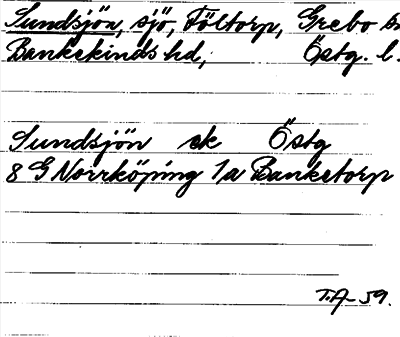 Sundsjön, sjö, Föltorp, Grebo
Bankekinds hd, Östg. l.
Sundsjön ek Östg
8 G Norrköping 1a Banketorp
T.A-59.